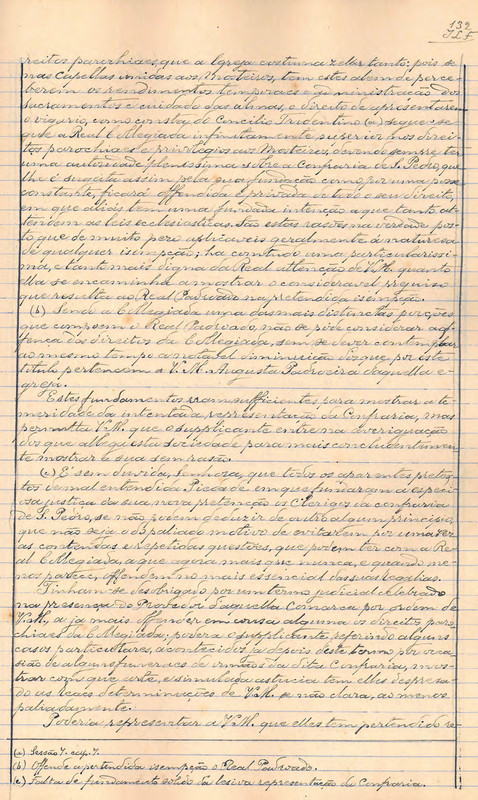 132
J.L.F.
reitos parochiaes, que a Igreja costuma zelar tanto: pois se
nas Capellas unidas aos Mosteiros, tem estes alem de perce-
berem os rendimentos temporaes e administração dos
Sacramentos e cuidado das almas, o direito de apresentarem
o vigario, como consta do Concilio Tridentino (a) segue-se
que a Real Collegiada infinitamente superior nos direi-
tos parochiaes e privilegios aos Mosteiros, devendo sempre ter
uma autoridade plenissima sobre a Confraria de S. Pedro que
lhe é sugeita assim pela sua fundação como por uma posse
constante, ficará offendida e privada de todo o seu direito,
em que aliás tem uma fundada intenção a que tanto at-
tendem as leis ecclesiasticas. São estas rasões na verdade pos-
to que de muito pezo applicaveis geralmente á natureza
de qualquer isempção; ha comtudo uma particularissi-
ma, e tanto mais digna da Real attenção de V.M. quanto
ella se encaminha a mostrar o consideravel prejuizo
que resulta ao Real Padroado na pretendida isempção.
(b) Sendo a Collegiada uma das mais distinctas porções
que compoem o Real Padroado, não se póde considerar a of-
fença dos direitos da Collegiada, sem se dever contemplar
ao mesmo tempo a notavel diminuição dos que por este
titulo pertencem a V.M. Augusta Padroeira daquella e-
greja.
Estes fundamentos eram sufficientes para mostrar a te-
meridade da intentada, representação da Confraria, mas
permitta V.M. que o supplicante entre na averiguação
dos que allega esta sociedade para mais concludentemen-
te mostrar a sua sem rasão.
(c) É sem duvida, Senhora, que todos os aparentes pretex-
tos de mal entendida Piedade em que fundaram a especi-
osa justiça da sua nova pretenção os Clerigos da confraria
de S. Pedro, se não podem deduzir de outro algum principio,
que não seja o dispaliado motivo de evitarem por uma vez
as contendas e repetidas questões, que podem ter com a Re-
al Collegiada, a que agora mais que nunca, e quando me-
nos parece, offendem no mais essencial das suas regalias.
Tinham-se desobrigado por um termo judicial celebrado
na presença do Provedor daquella Comarca por ordem de
V.M. a ja mais offender em cousa alguma os direitos paro-
chiaes da Collegiada, podera o supplicante, referindo alguns
casos particulares, acontecidos ja depois deste termo por occa-
sião de alguns funeraes de irmãos da dita Confraria, mos-
trar com que arte, e simulada astucia tem elles despresa-
do as Reaes determinações de V.M. se não clara, ao menos
paliadamente.
Poderia representar a V.M. que elles tem pertendido se-
(a) Sessão 7. cap. 7.
(b) Offende a pertendida isempção o Real Padroado.
(c) Falta de fundamento solido da lesiva representação da Confraria.